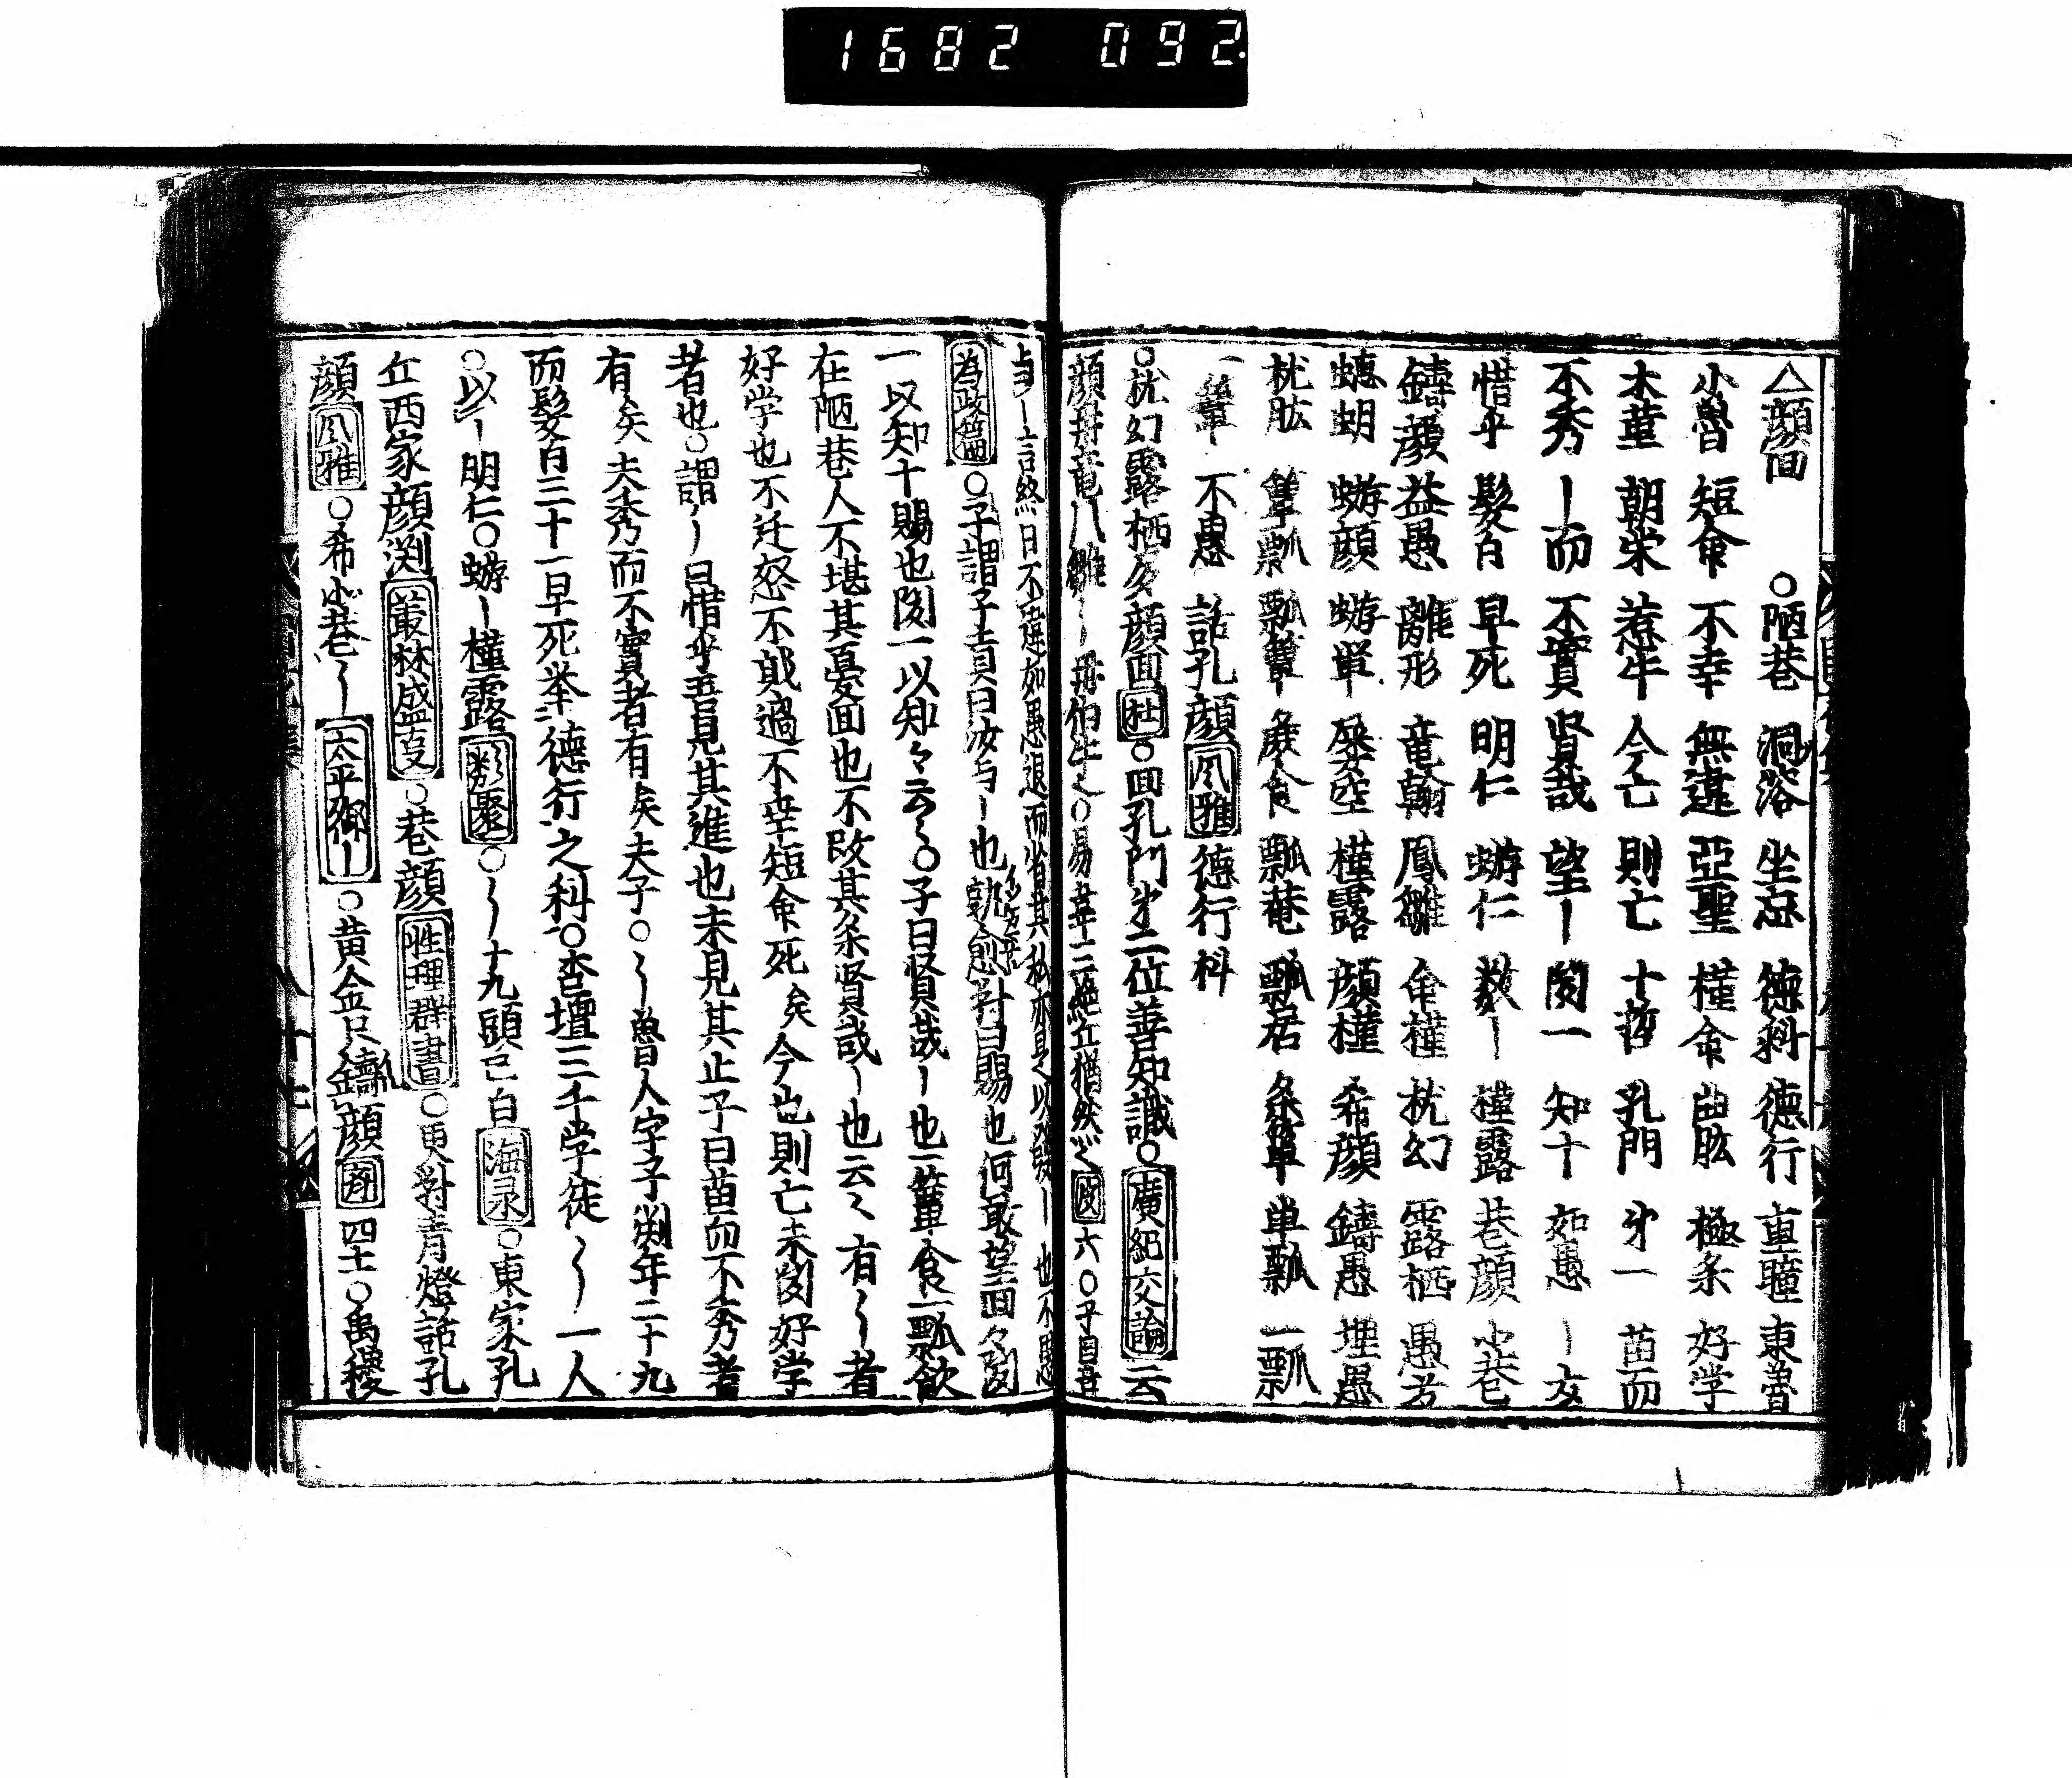 1682 092
△顔回 ○陋巷 洞浴 坐忘 徳科 徳行 重瞳 東魯
小魯 短命 不幸 無違 亞聖 槿命 曲肱 極楽 好学
木菫 朝栄 惹牛 今亡 則亡 十哲 孔門 㐧一 苗而
不秀 ｜而 不實 賢哉 望｜ 聞一 知十 如愚 ｜友
惜乎 髪白 早死 明仁 蝣仁 数｜ 槿露 巷顔 小巷
鑄顔 益愚 離形 竜翰 鳳雛 命槿 枕幻 露栖 愚友
蟪蛄 蝣顔 蝣單 屡空 槿露 顔槿 希顔 鑄愚 堙愚
枕肱 簞瓢 瓢簞 蔬食 瓢菴 瓢居 单瓢 一瓢
一簞 不愚 話孔顔 风雅 德行科
○枕幻露栖 顔回 杜 ○回孔門㐧二位善知識○廣紀交論云
顔冉竜 雛 冉伯牛 ○易韋三絶丘猶然 六○子曰吾
与｜言終日不違如愚退而省其私亦足以發｜也不愚
為政篇○子謂子貢曰汝与｜也孰愈對曰賜也何敢望回々聞
一以知十賜也聞一以知々云々○子曰賢哉｜也一簞食一瓢飲
在陋巷人不堪其憂回也不改其楽賢哉｜也云々有〳〵者
好学也不迁怒不貳過不幸短命死矣今也則亡未聞好学
者也○謂｜曰惜乎吾見其進也未見其止子曰苗而不秀者
有矣夫秀而不實者有矣夫子○〳〵魯人字子渕年二十九
而髪白三十一早死挙 徳行之科○杏壇三千学徒〳〵一人
○以｜明仁○蝣｜槿露 類聚 ○〳〵十九頭已白 海录 ○東家孔
丘西家顔渕 叢林盛夏 ○巷顔 性理群書 ○更對青燈話孔
顔 风雅 ○希 巷〳〵 太平御｜ ○黄金只鑄顔 四十○禹稷